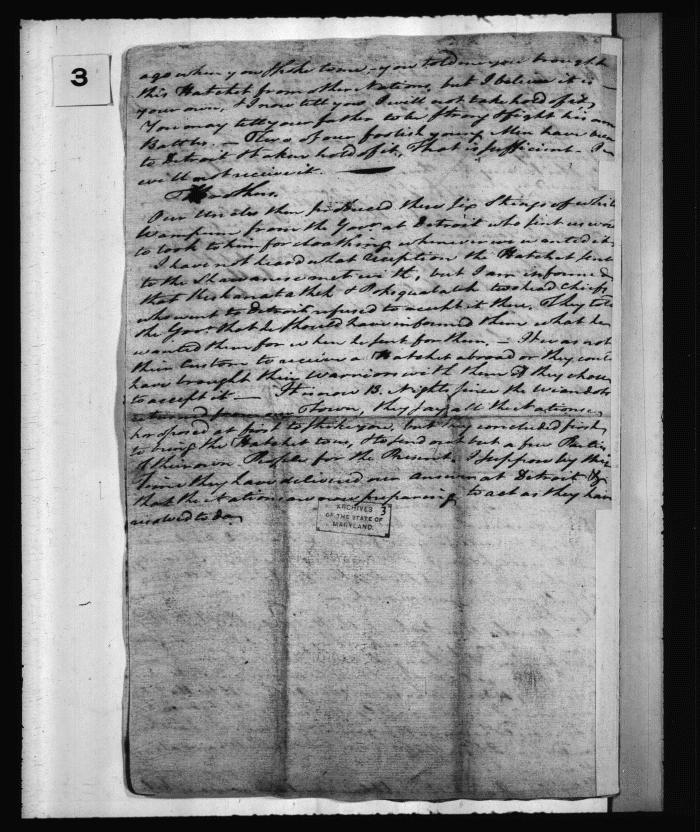 3
ago when you spoke to me, you told me you brought
this Hatchet from other Nations, but I believe it is
your own, & I now tell you I will not take hold of it,
You may tell your father to be Strong & fight his own
Battles. — Two of our foolish young Men have been
to Detroit & taken hold of it, That is sufficient — I
will not receive it.
Brothers.
Our Uncles then produced three Six Strings of white
Wampum from the Govr at Detroit who sent us word
to look to him for cloathing whenever we wanted it.
I have not heard what reception the Hatchet sent
to the Shawanese met with, but I am informed
that & two head Chiefs
who went to Detroit refused to accept it there, They told
the Govr that he should have informed them what he
wanted them for when he sent for them. — It was not
their Custom to receive a Hatchet abroad or they
have brought their Warriors with them if they chose
to accept it — It is now 13 Nights since the Wiandots
returned from our Town, they say all the Nations
proposed at first to strike you, but they concluded first
to bring the Hatchet to us, & to send out but a few Parties
of their own People for the Present, I suppose by this
time they have delivered our Answer at Detroit &
that the Nations are now preparing to act as they have
resolved to do
ARCHIVES 3
OF THE STATE OF
MARYLAND.